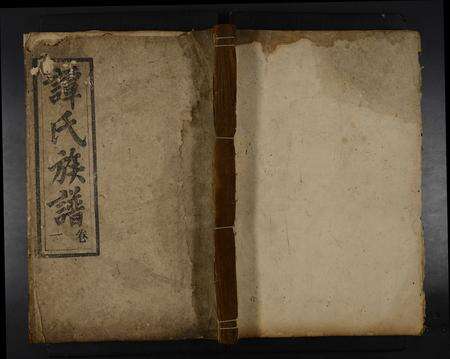 譚氏族譜
卷一